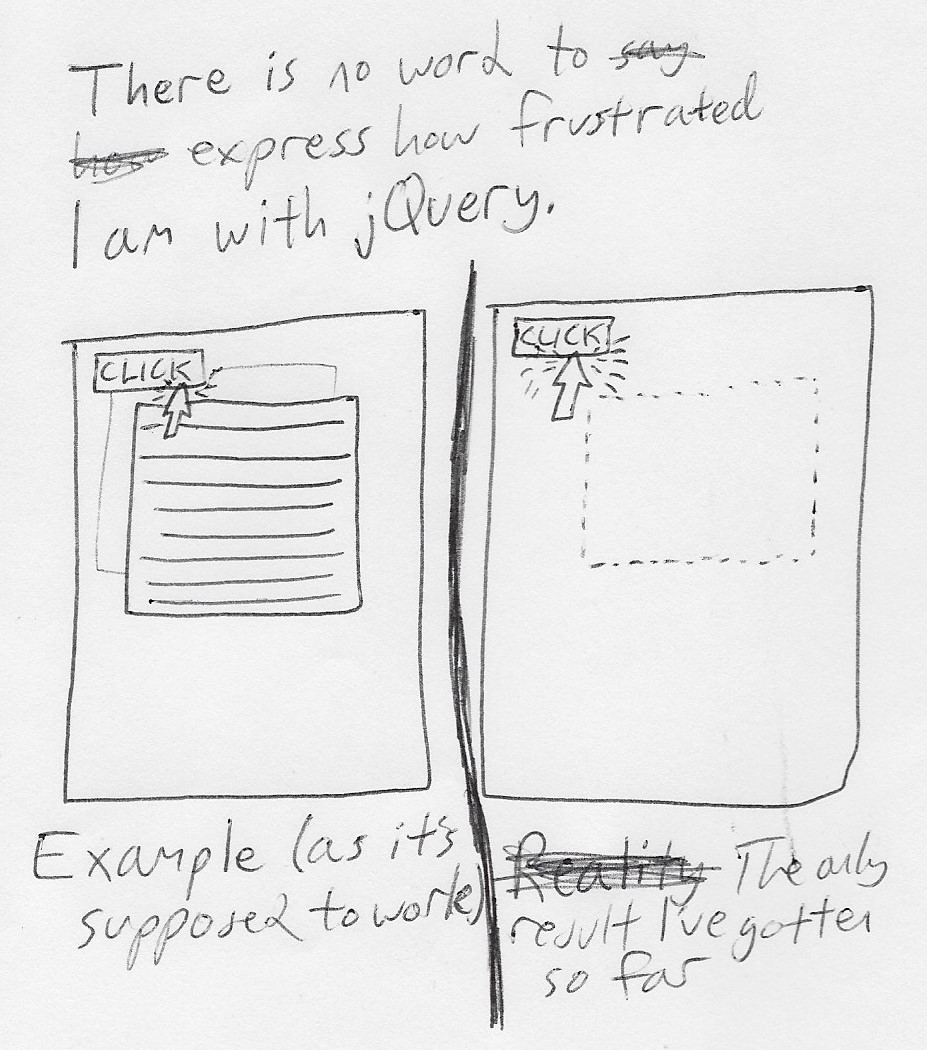 There is no word to say
how express how frustrated
I am with jQuery.
CLICK
CLICK
Example (as it's
supposed to work)
Reality The only
result I've gotten
so far